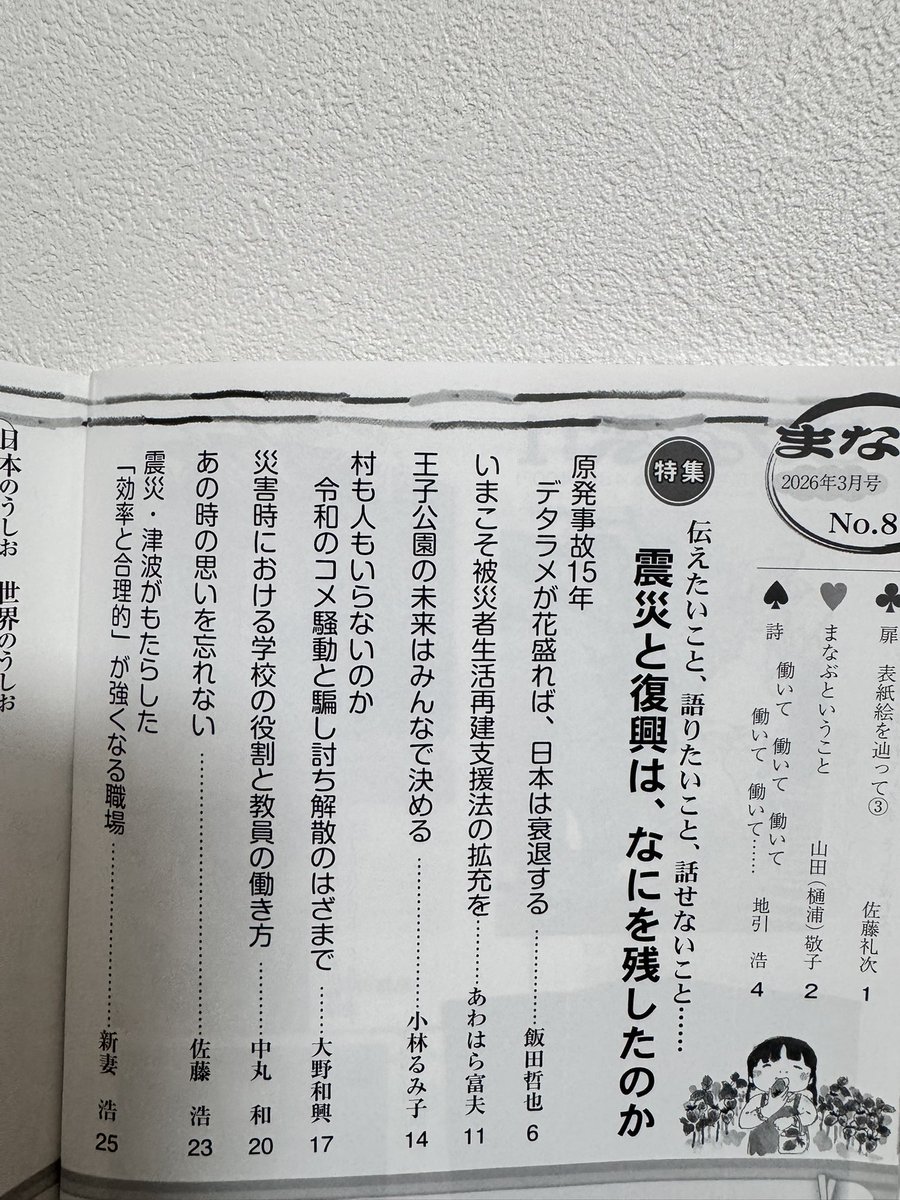 まな
2026年3月号
No.8
♣ 扉 表紙絵を辿って③ 佐藤礼次 1
♥ まなぶということ 山田(樋浦)敬子 2
♠ 詩 働いて 働いて 働いて
働いて 働いて…… 地引 浩 4
特集
伝えたいこと、語りたいこと、話せないこと……
震災と復興は、なにを残したのか
原発事故15年
デタラメが花盛れば、日本は衰退する …………飯田哲也 6
いまこそ被災者生活再建支援法の拡充を……あわはら富夫 11
王子公園の未来はみんなで決める …………小林るみ子 14
村も人もいらないのか
令和のコメ騒動と騙し討ち解散のはざまで ……大野和興 17
災害時における学校の役割と教員の働き方 ………中丸 和 20
あの時の思いを忘れない …………………佐藤 浩 23
震災・津波がもたらした
「効率と合理的」が強くなる職場 …………………新妻 浩 25
日本のうしお 世界のうしお